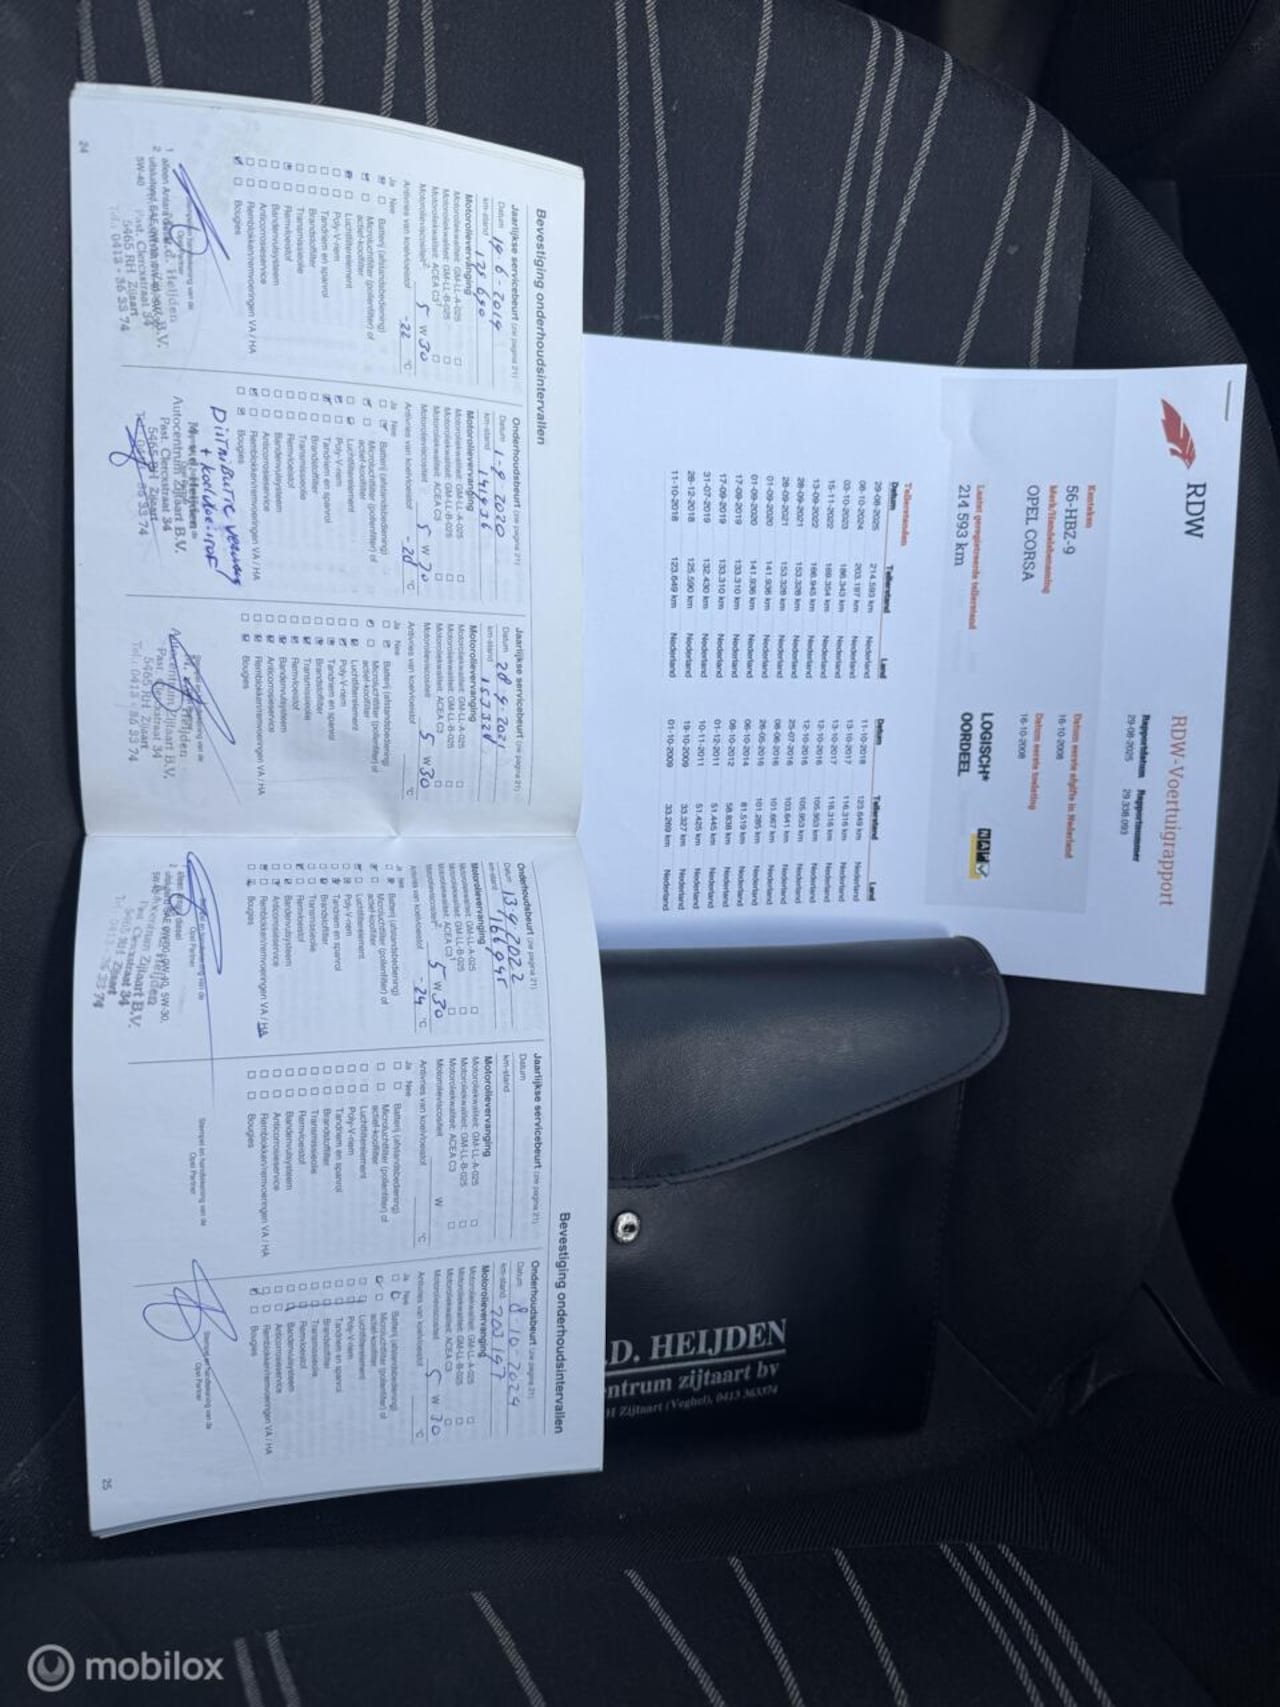 RDW
RDW-Voertuigrapport
Rapportdatum Rapportnummer
29-08-2025 29.338.093
Kenteken
56-HBZ-9
Datum eerste afgifte in Nederland
16-10-2008
Merk/Handelsbenaming
OPEL CORSA
Datum eerste toelating
16-10-2008
Laatst geregistreerde tellerstand
214 593 km
LOGISCH*
OORDEEL
NAP
Tellerstanden
Datum Tellerstand Land
29-08-2025 214.593 km Nederland
08-10-2024 203.197 km Nederland
03-10-2023 186.343 km Nederland
15-11-2022 169.354 km Nederland
13-09-2022 166.945 km Nederland
28-09-2021 153.328 km Nederland
28-09-2021 153.328 km Nederland
01-09-2020 141.936 km Nederland
01-09-2020 141.936 km Nederland
17-09-2019 133.310 km Nederland
17-09-2019 133.310 km Nederland
31-07-2019 132.430 km Nederland
28-12-2018 125.590 km Nederland
11-10-2018 123.649 km Nederland
Datum Tellerstand Land
11-10-2018 123.649 km Nederland
13-10-2017 116.316 km Nederland
13-10-2017 116.316 km Nederland
12-10-2016 105.953 km Nederland
12-10-2016 105.953 km Nederland
25-07-2016 103.641 km Nederland
08-06-2016 101.667 km Nederland
26-05-2016 101.285 km Nederland
06-10-2014 81.519 km Nederland
08-10-2012 58.838 km Nederland
01-12-2011 51.445 km Nederland
10-11-2011 51.425 km Nederland
19-10-2009 33.327 km Nederland
01-10-2009 33.269 km Nederland
Bevestiging onderhoudsintervallen
Jaarlijkse servicebeurt (zie pagina 21)
Datum
km-stand
Motorolieverversing
Motoroliekwaliteit: GM-LL-A-025
Motoroliekwaliteit: GM-LL-B-025
Motoroliekwaliteit: ACEA C3
Motorolieviscositeit 5 W 30
Antivries van koelvloeistof -22 °C
Ja Nee
Batterij (afstandsbediening)
Microluchtfilter (pollenfilter) of
actief-koolfilter
Luchtfilterelement
Poly-V-riem
Tandriem en spanrol
Brandstoffilter
Transmissieolie
Remvloeistof
Bandenvulsysteem
Anticorrosieservice
Remblokken/remvoeringen VA / HA
Bougies
5465 RH Zijtaart
Tel.: 0413 - 36 33 74
24
Onderhoudsbeurt (zie pagina 21)
Datum 1-9 2020
km-stand 141936
Motorolieverversing
Motoroliekwaliteit: GM-LL-A-025
Motoroliekwaliteit: GM-LL-B-025
Motoroliekwaliteit: ACEA C3
Motorolieviscositeit 5 W 30
Antivries van koelvloeistof °C
Ja Nee
Batterij (afstandsbediening)
Microluchtfilter (pollenfilter) of
actief-koolfilter
Luchtfilterelement
Poly-V-riem
Tandriem en spanrol
Brandstoffilter
Transmissieolie
Remvloeistof
Bandenvulsysteem
Anticorrosieservice
Remblokken/remvoeringen VA / HA
Bougies
Autocentrum Zijtaart B.V.
Past. Clercxstraat 34
Jaarlijkse servicebeurt (zie pagina 21)
Datum 28 9 2021
km-stand 153328
Motorolieverversing
Motoroliekwaliteit: GM-LL-A-025
Motoroliekwaliteit: GM-LL-B-025
Motoroliekwaliteit: ACEA C3
Motorolieviscositeit 5 W 30
Antivries van koelvloeistof °C
Ja Nee
Batterij (afstandsbediening)
Microluchtfilter (pollenfilter) of
actief-koolfilter
Luchtfilterelement
Poly-V-riem
Tandriem en spanrol
Brandstoffilter
Transmissieolie
Remvloeistof
Bandenvulsysteem
Anticorrosieservice
Remblokken/remvoeringen VA / HA
Bougies
5465 RH Zijtaart
Tel.: 0413 - 36 33 74
Onderhoudsbeurt (zie pagina 21)
Datum 13 9 2022
km-stand 166945
Motorolieverversing
Motoroliekwaliteit: GM-LL-A-025
Motoroliekwaliteit: GM-LL-B-025
Motoroliekwaliteit: ACEA C3
Motorolieviscositeit 5 W 30
Antivries van koelvloeistof -24 °C
Ja Nee
Batterij (afstandsbediening)
Microluchtfilter (pollenfilter) of
actief-koolfilter
Luchtfilterelement
Poly-V-riem
Tandriem en spanrol
Brandstoffilter
Transmissieolie
Remvloeistof
Bandenvulsysteem
Anticorrosieservice
Remblokken/remvoeringen VA / HA
Bougies
Bevestiging onderhoudsintervallen
Jaarlijkse servicebeurt (zie pagina 21)
Datum
km-stand
Motorolieverversing
Motoroliekwaliteit: GM-LL-A-025
Motoroliekwaliteit: GM-LL-B-025
Motoroliekwaliteit: ACEA C3
Motorolieviscositeit W
Antivries van koelvloeistof °C
Ja Nee
Batterij (afstandsbediening)
Microluchtfilter (pollenfilter) of
actief-koolfilter
Luchtfilterelement
Poly-V-riem
Tandriem en spanrol
Brandstoffilter
Transmissieolie
Remvloeistof
Bandenvulsysteem
Anticorrosieservice
Remblokken/remvoeringen VA / HA
Bougies
Stempel en handtekening van de
Opel Partner
Onderhoudsbeurt (zie pagina 21)
Datum 8-10-2024
km-stand 203197
Motorolieverversing
Motoroliekwaliteit: GM-LL-A-025
Motoroliekwaliteit: GM-LL-B-025
Motoroliekwaliteit: ACEA C3
Motorolieviscositeit 5 W 30
Antivries van koelvloeistof °C
Ja Nee
Batterij (afstandsbediening)
Microluchtfilter (pollenfilter) of
actief-koolfilter
Luchtfilterelement
Poly-V-riem
Tandriem en spanrol
Brandstoffilter
Transmissieolie
Remvloeistof
Bandenvulsysteem
Anticorrosieservice
Remblokken/remvoeringen VA / HA
Bougies
Stempel en handtekening van de
Opel Partner
25
.D. HEIJDEN
ntrum zijtaart bv
H Zijtaart (Veghel), 0413 363374
mobilox